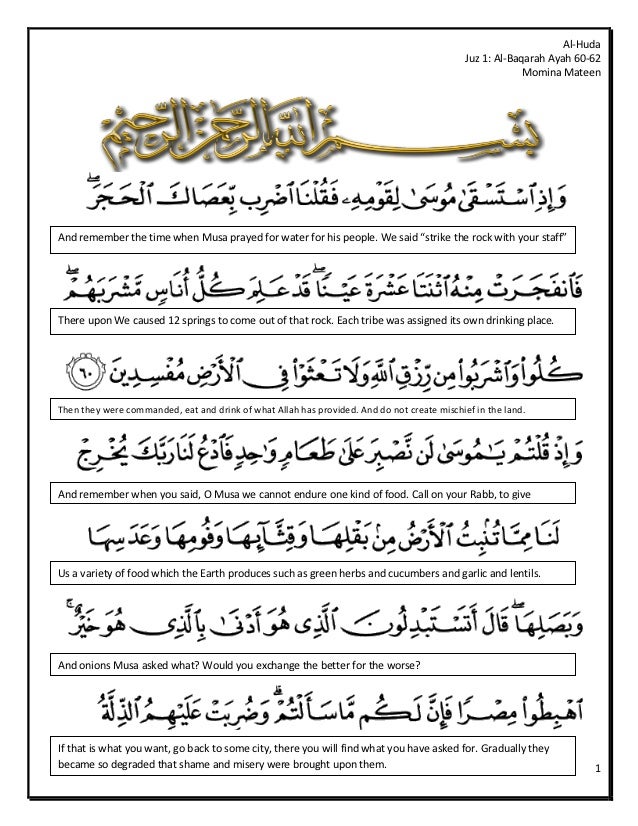 Al-Huda
Juz 1: Al-Baqarah Ayah 60-62
Momina Mateen
بِسْمِ اللَّهِ الرَّحْمَٰنِ الرَّحِيمِ
وَإِذِ ٱسْتَسْقَىٰ مُوسَىٰ لِقَوْمِهِۦ فَقُلْنَا ٱضْرِب بِّعَصَاكَ ٱلْحَجَرَۖ
And remember the time when Musa prayed for water for his people. We said “strike the rock with your staff”
فَٱنفَجَرَتْ مِنْهُ ٱثْنَتَا عَشْرَةَ عَيْنًاۖ قَدْ عَلِمَ كُلُّ أُنَاسٍ مَّشْرَبَهُمْۖ
There upon We caused 12 springs to come out of that rock. Each tribe was assigned its own drinking place.
كُلُوا۟ وَٱشْرَبُوا۟ مِن رِّزْقِ ٱللَّهِ وَلَا تَعْثَوْا۟ فِى ٱلْأَرْضِ مُفْسِدِينَ ٦٠
Then they were commanded, eat and drink of what Allah has provided. And do not create mischief in the land.
وَإِذْ قُلْتُمْ يَـٰمُوسَىٰ لَن نَّصْبِرَ عَلَىٰ طَعَامٍ وَٰحِدٍ فَٱدْعُ لَنَا رَبَّكَ يُخْرِجْ
And remember when you said, O Musa we cannot endure one kind of food. Call on your Rabb, to give
لَنَا مِمَّا تُنۢبِتُ ٱلْأَرْضُ مِنۢ بَقْلِهَا وَقِثَّآئِهَا وَفُومِهَا وَعَدَسِهَا
Us a variety of food which the Earth produces such as green herbs and cucumbers and garlic and lentils.
وَبَصَلِهَاۖ قَالَ أَتَسْتَبْدِلُونَ ٱلَّذِى هُوَ أَدْنَىٰ بِٱلَّذِى هُوَ خَيْرٌۚ
And onions Musa asked what? Would you exchange the better for the worse?
ٱهْبِطُوا۟ مِصْرًا فَإِنَّ لَكُم مَّا سَأَلْتُمْۗ وَضُرِبَتْ عَلَيْهِمُ ٱلذِّلَّةُ
If that is what you want, go back to some city, there you will find what you have asked for. Gradually they
became so degraded that shame and misery were brought upon them.
1